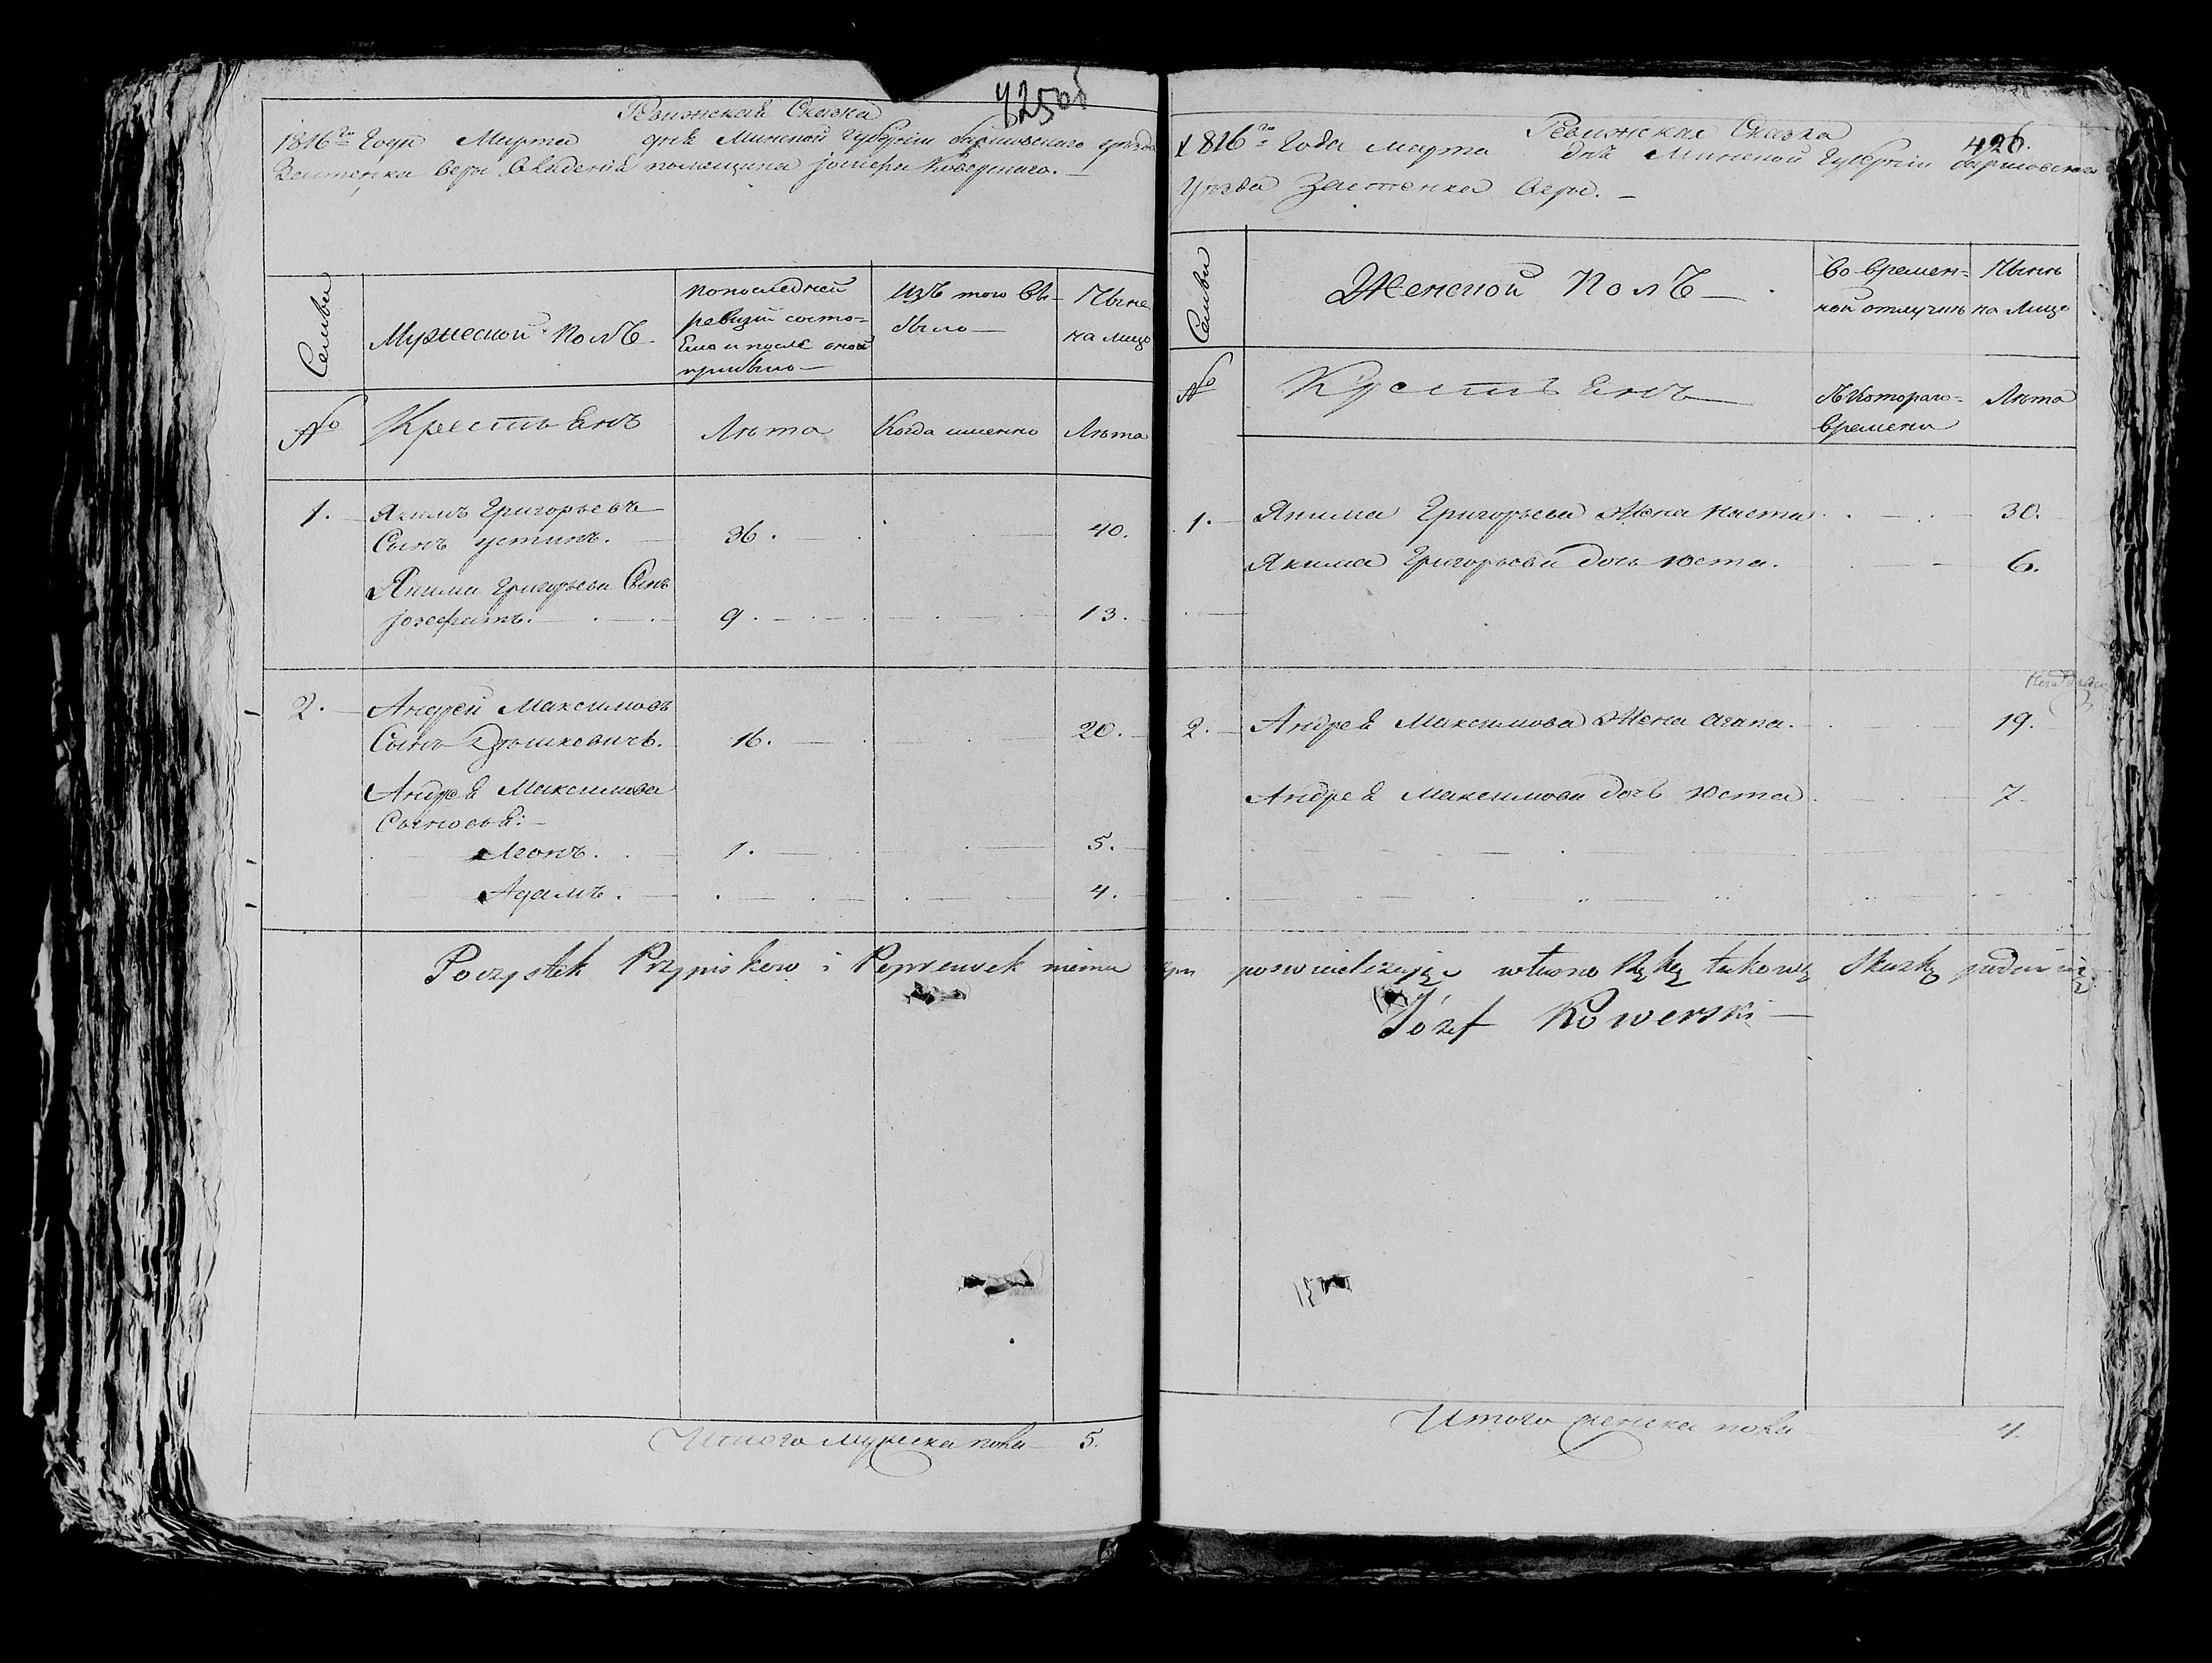 425об
Ревижская Сказка
1816го Года Марта дня Минской Губернiи борисовского уезда
Застенка беры Владенiя помещика József Коверскаго. —
Семьи
Мужеской полъ
попоследней ревизiи состо=
яло и после оной
прибыло —
Изъ того вы=
было —
Ныне
на лицо
№
Крестьянъ
Лѣта
Когда именно
Лѣта
1. Якимъ Григорьевъ
Сынъ устинъ. 36. 40.
Якима Григорьева Сынъ
Jозефатъ. 9. 13.
2. Андрей Максимовъ
Сынъ Дзѣшкевичъ. 16. 20.
Андрея Максимова
Сыновья:
Леонъ. 1. 5.
Адамъ. 4.
Итого мужеска пола 5.
426.
Ревижская Сказка
1816го Года марта дня Минской Губернiи борисовского
Уѣзда Застенка беры. —
Семьи
Женской Полъ —
Во времен=
ной отлучкѣ
Нынѣ
на Лицо
№
Крестьянъ
Съ Котораго=
Времени
Лѣта
1. Якима Григорьева Жена наста 30.
Якима Григорьева дочь юста. 6.
2. Андрея Максимова Жена агапа. 19.
Андрея Максимова дочь Юста 7.
Poczystek Przypiskow i Poprawek niema poswiadczając własną Ręką takową Skazkę
Józef Kowerski —
Итого женска пола 4.